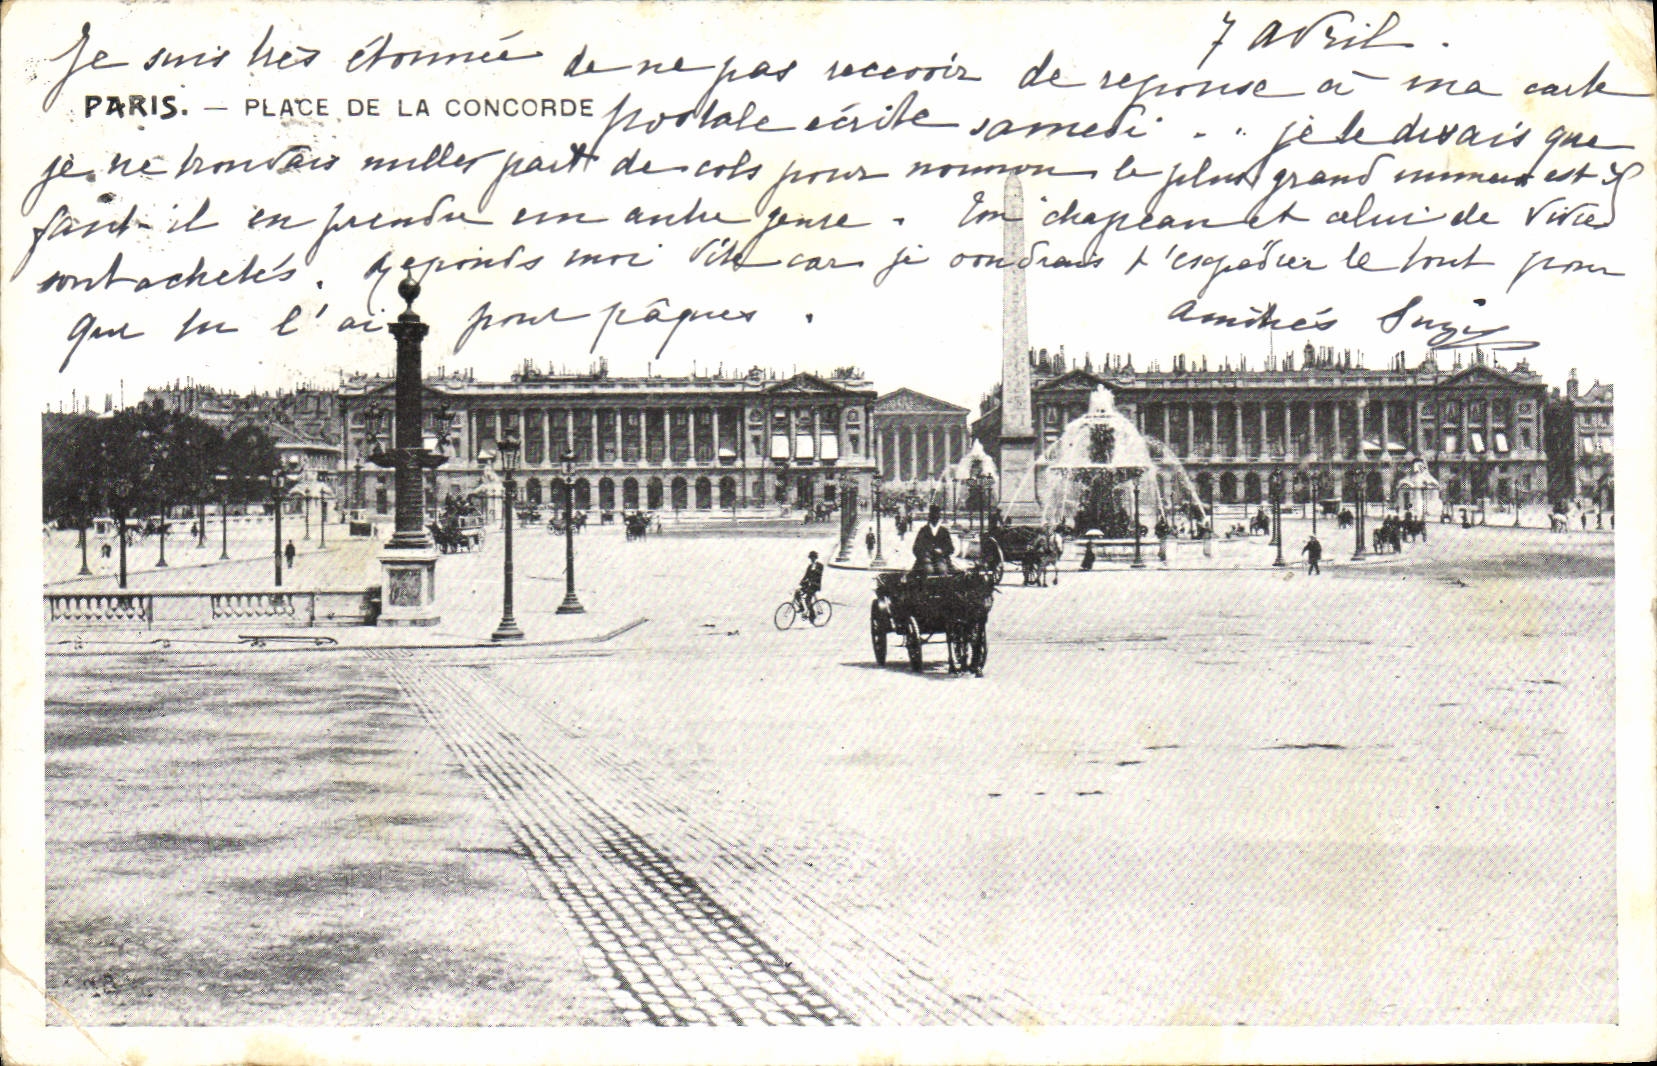 7 avril.
Je suis très étonnée de ne pas recevoir de reponse à ma carte
PARIS. — PLACE DE LA CONCORDE
postale écrite samedi . . . je te disais que
je ne trouvais nulles part de cols pour nounou le plus grand numero est
faut-il en prendre un autre genre. Ton chapeau et celui de
sont achetés. reponds moi vite car je voudrais t'expédier le tout pour
que tu l'ai pour pâques.
amitiés Suzie